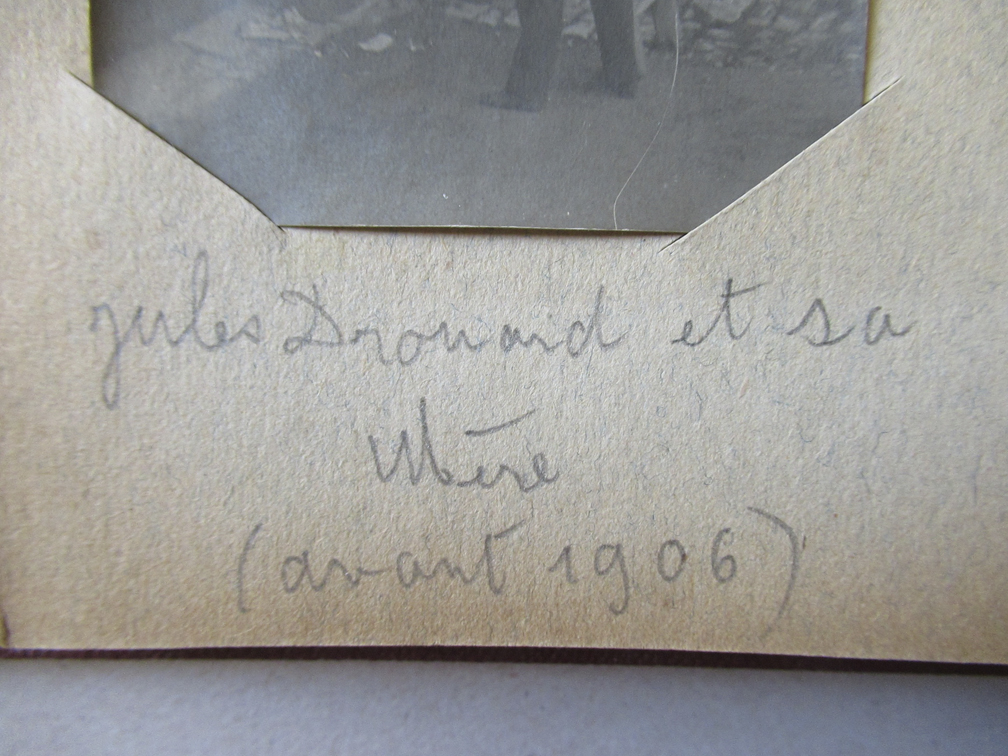 Jules Drouard et sa
Mère
(avant 1906)